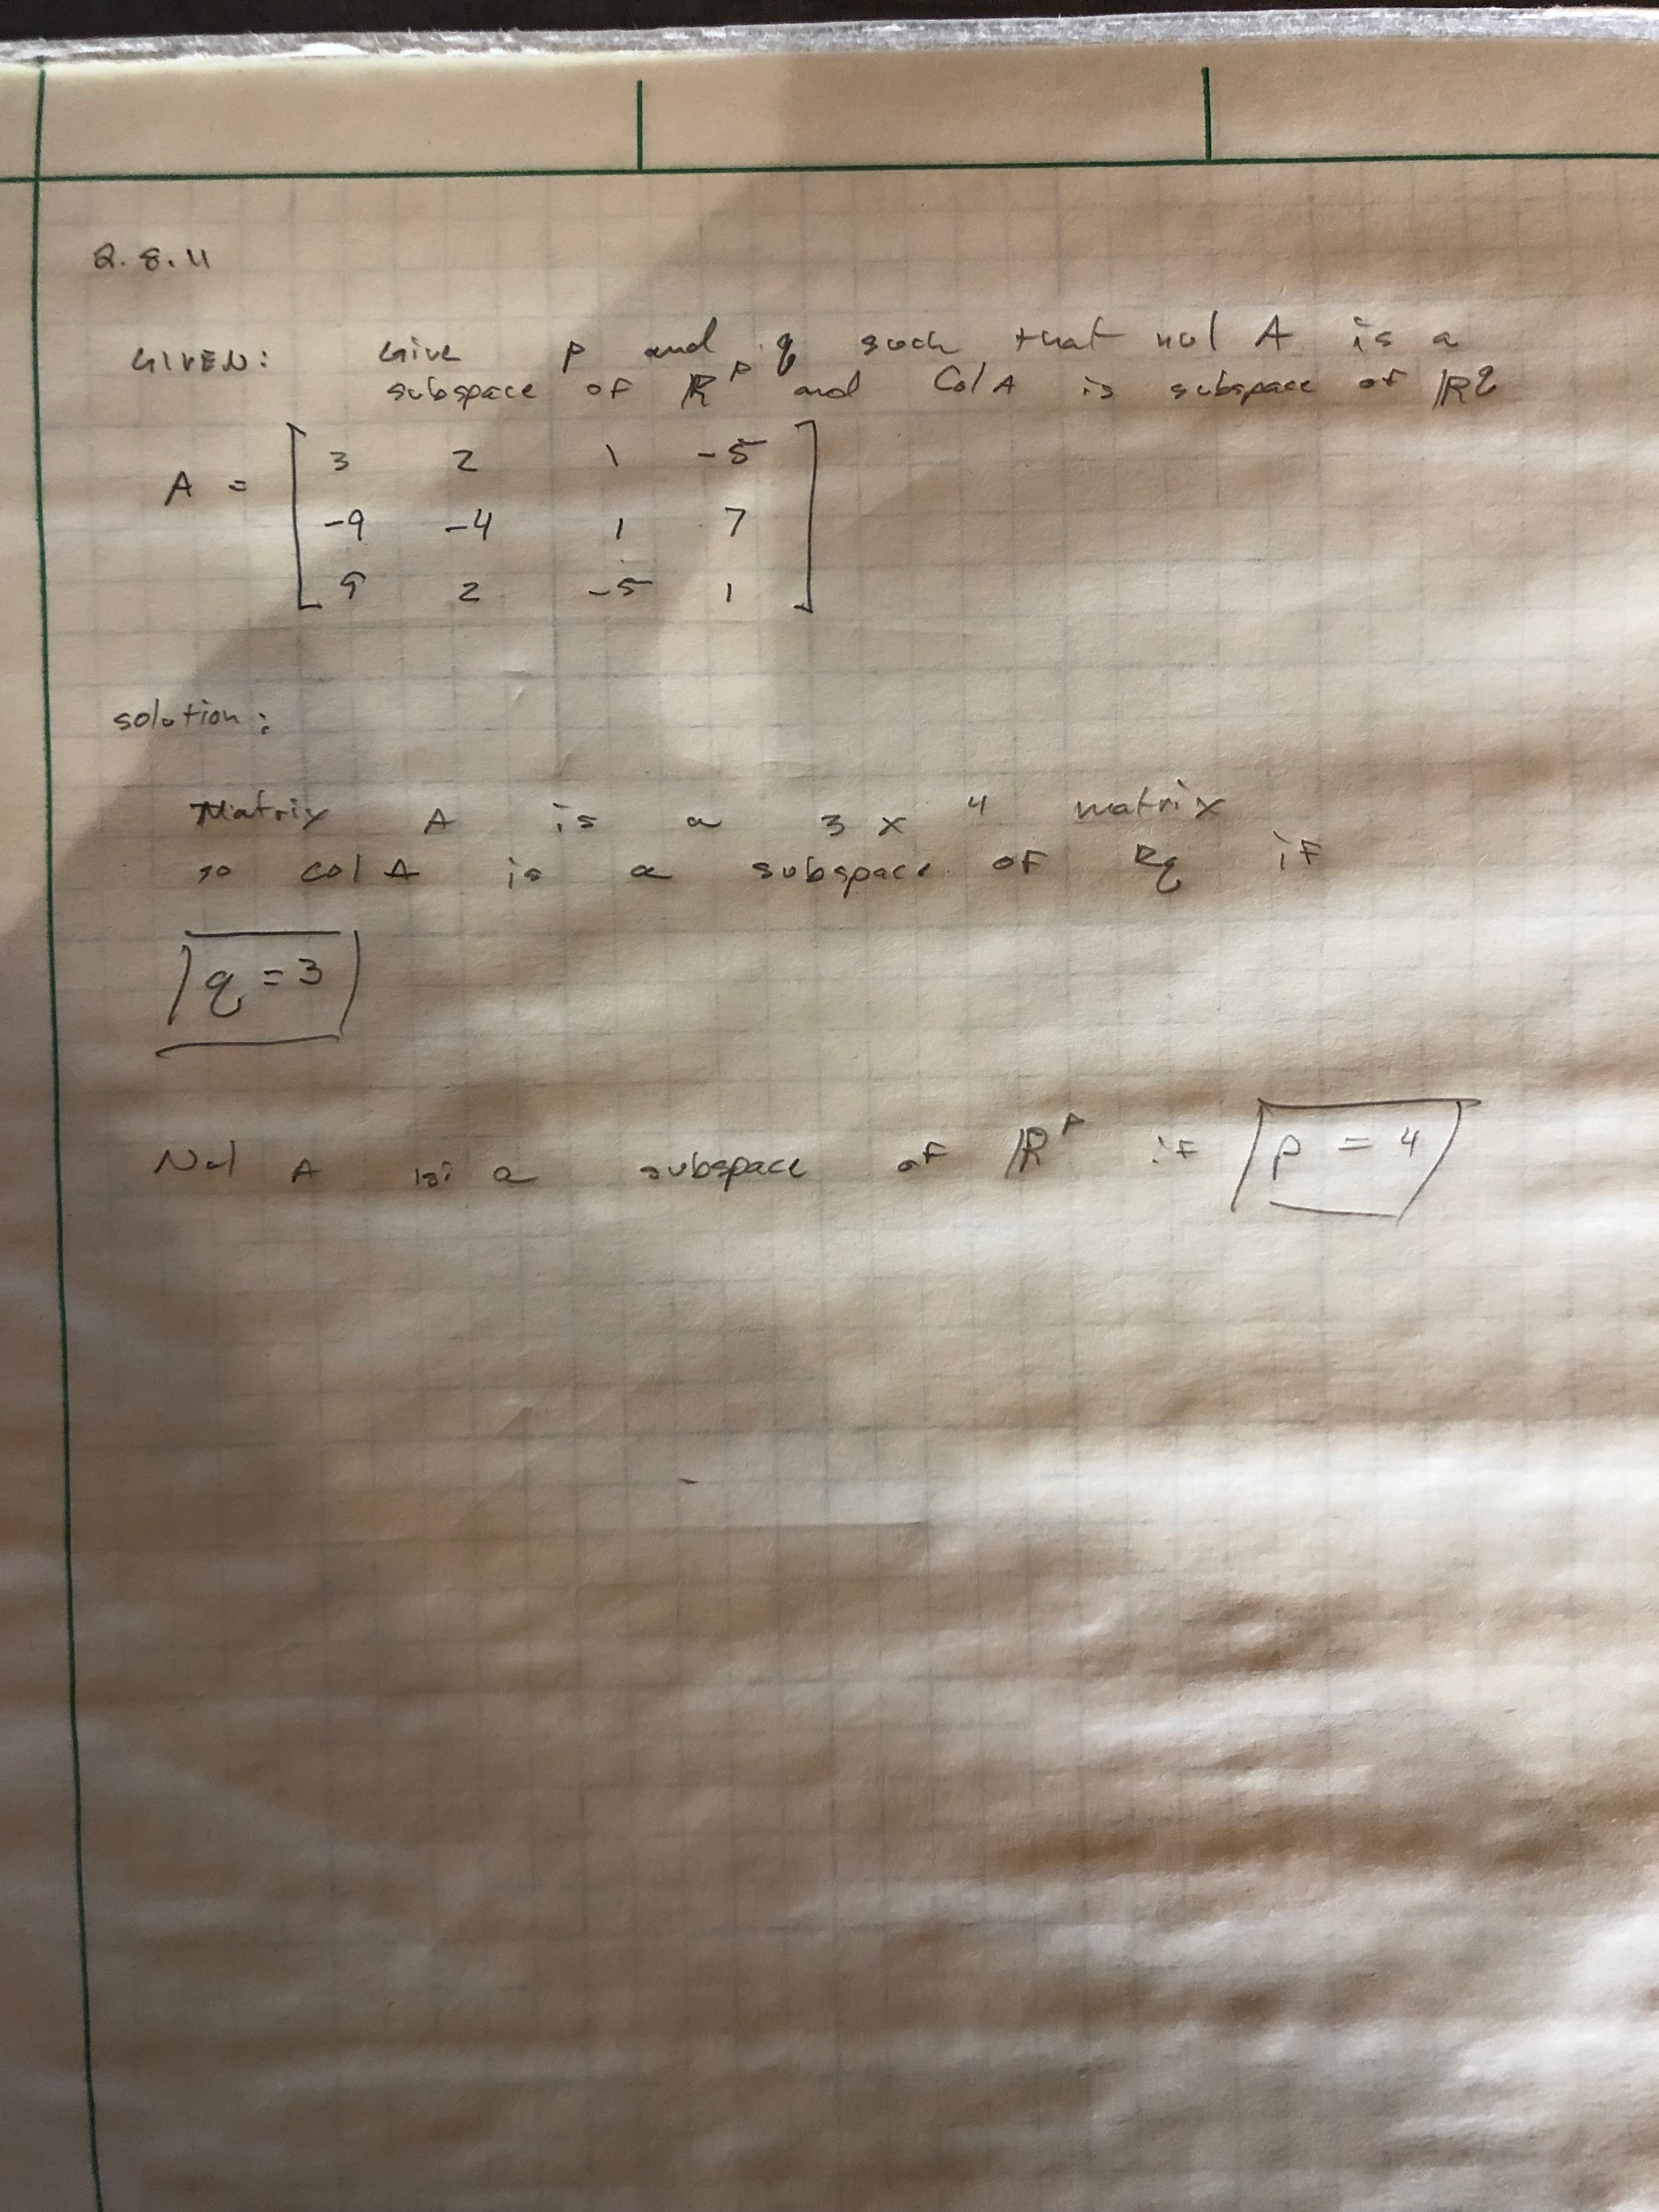 2.8.11
GIVEN: Give p and q such that nul A is a
subspace of ℝᵖ and Col A is subspace of ℝq
A = [ 3 2 1 -5
-9 -4 1 7
9 2 -5 1 ]
solution:
Matrix A is a 3 x 4 matrix
so col A is a subspace of Rq if
q = 3
Nul A is a subspace of ℝᵖ if p = 4